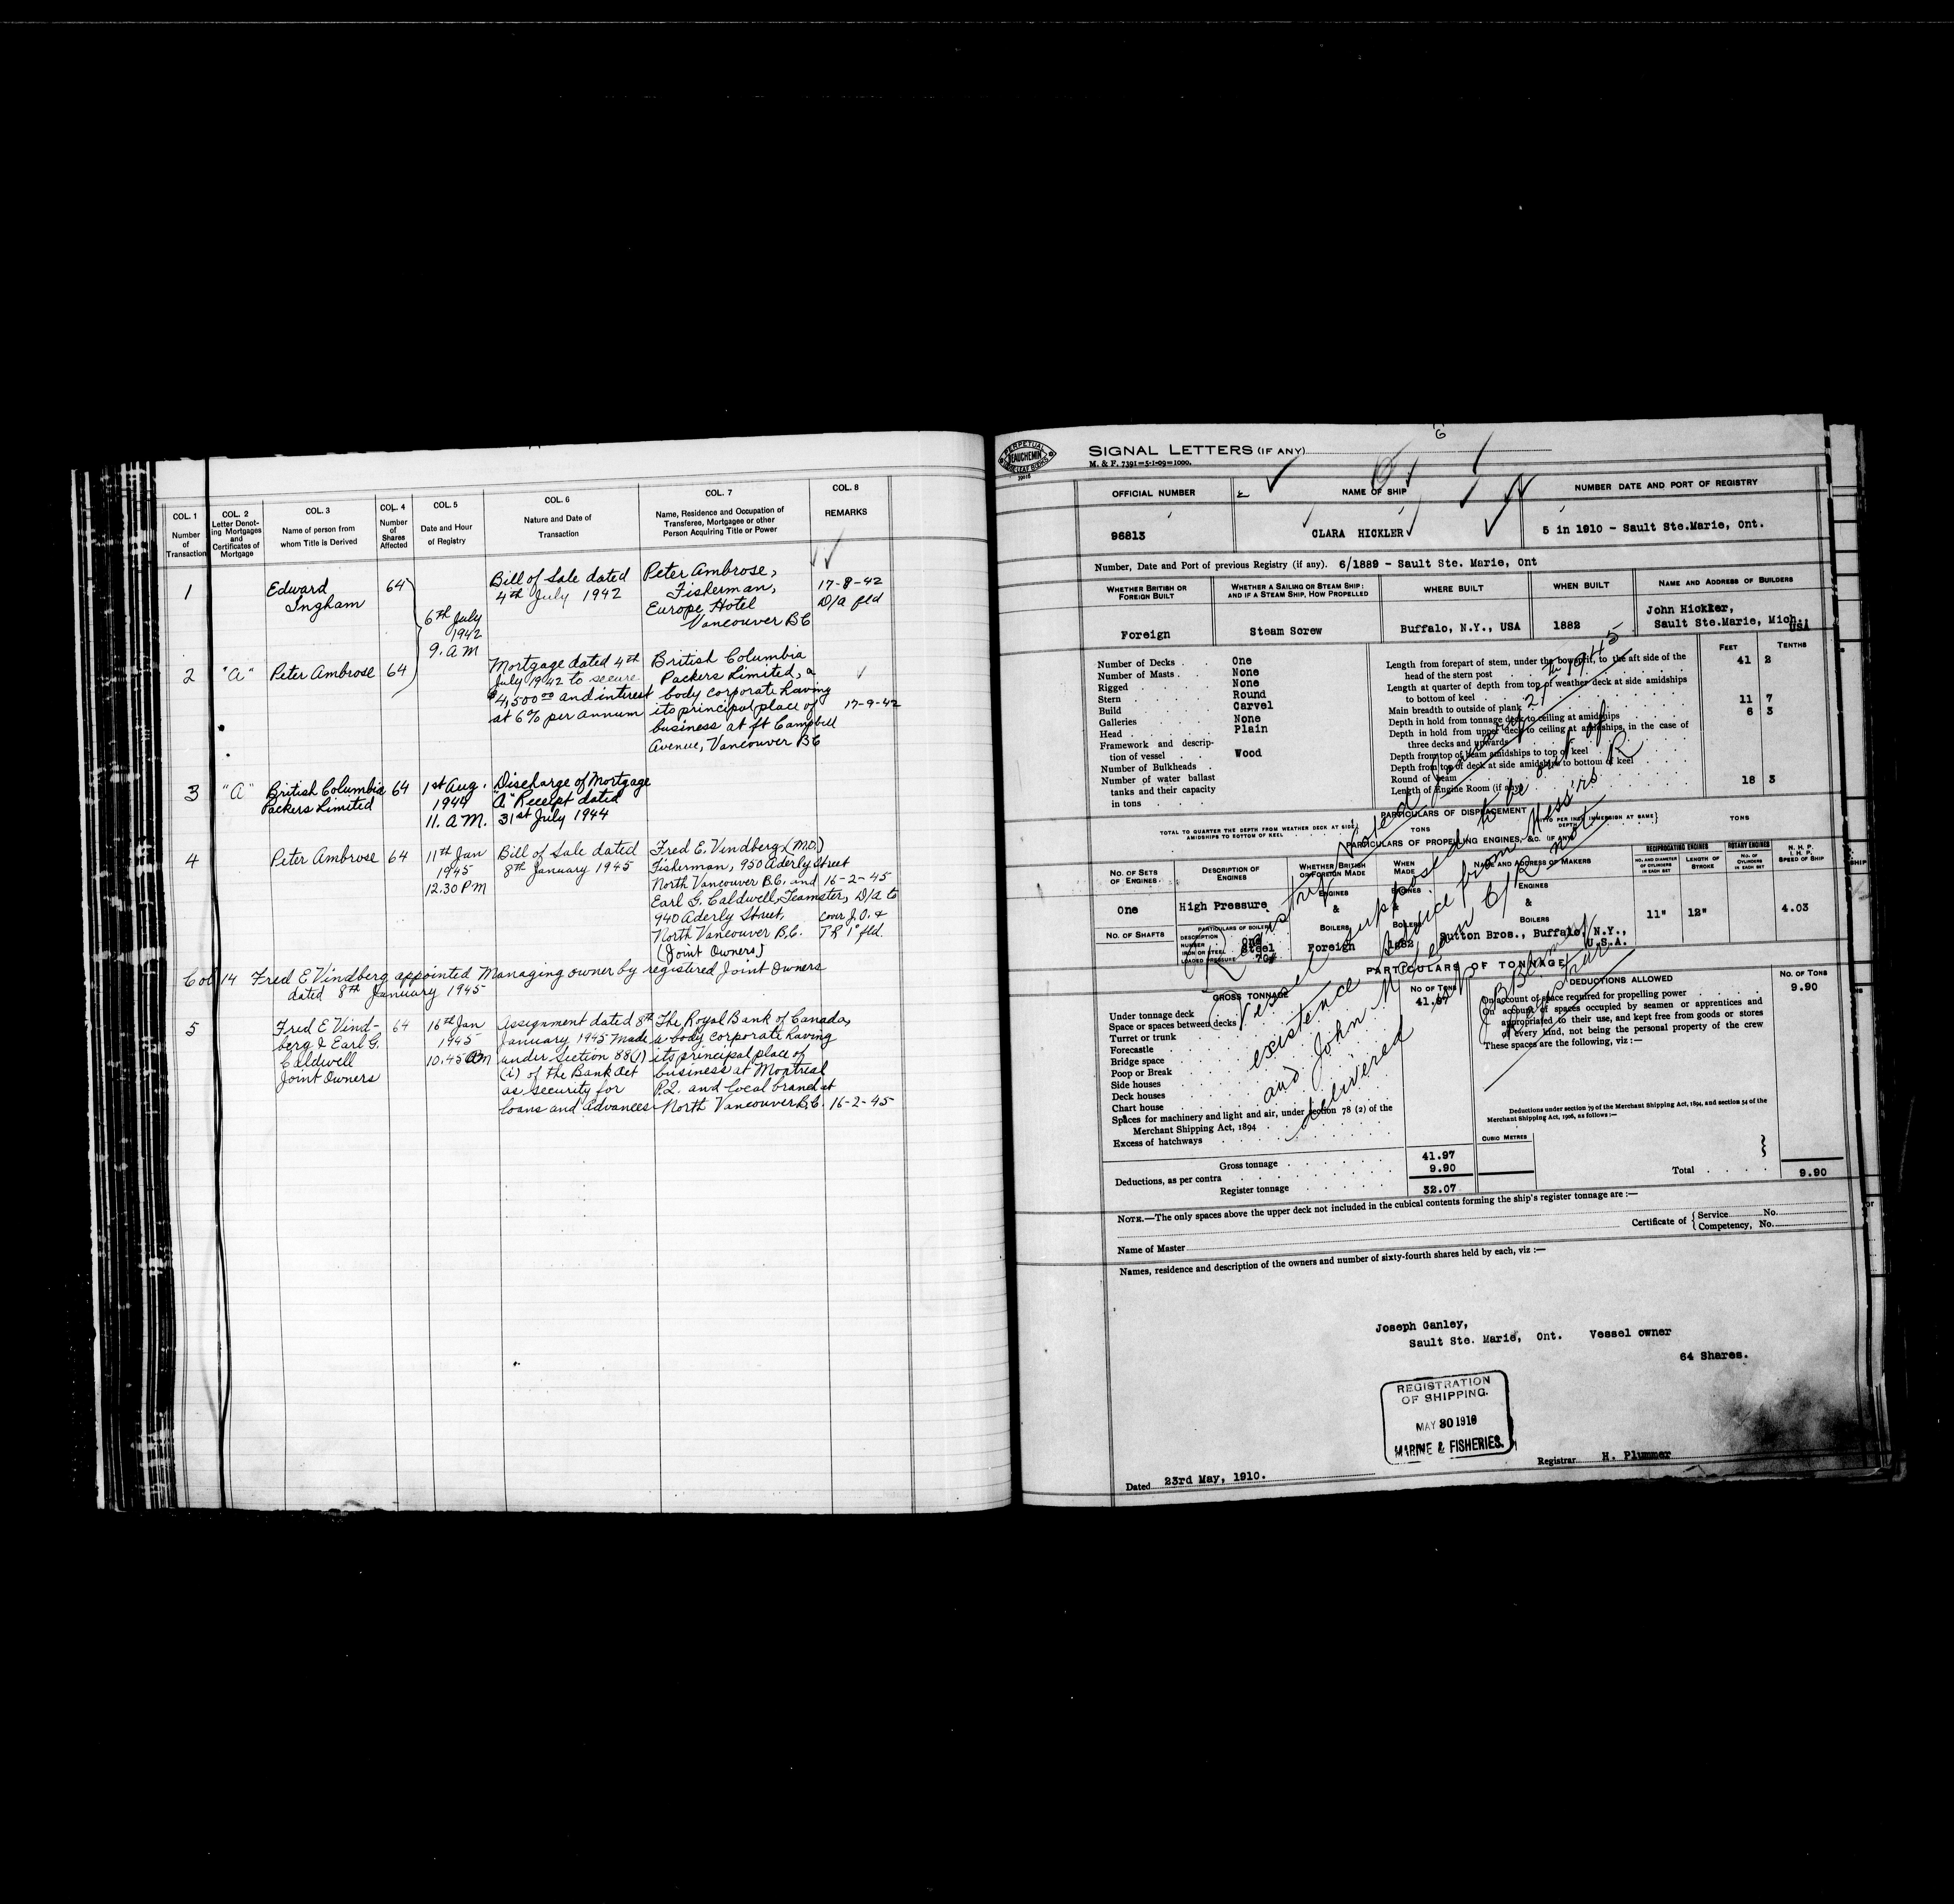 COL. 1
Number
of
Transaction
COL. 2
Letter Denot-
ing Mortgages
and
Certificates of
Mortgage
COL. 3
Name of person from
whom Title is Derived
COL. 4
Number
of
Shares
Affected
COL. 5
Date and Hour
of Registry
COL. 6
Nature and Date of
Transaction
COL. 7
Name, Residence and Occupation of
Transferee, Mortgagee or other
Person Acquiring Title or Power
COL. 8
REMARKS
1
Edward
Ingham
64
6th July
1942
9. AM
Bill of Sale dated
4th July 1942
Peter Ambrose,
Fisherman,
Europe Hotel
Vancouver BC
17-8-42
D/a fld
2
"A"
Peter Ambrose
64
Mortgage dated 4th
July 1942 to secure
$4,500.00 and interest
at 6% per annum
British Columbia
Packers Limited, a
body corporate having
its principal place of
business at ft Campbell
Avenue, Vancouver BC
17-9-42
3
"A"
British Columbia
Packers Limited
64
1st Aug.
1944
11. A.M.
Discharge of Mortgage
"A" Receipt dated
31st July 1944
4
Peter Ambrose
64
11th Jan
1945
12.30 PM
Bill of Sale dated
8th January 1945
Fred E. Vindberg (M.O.)
Fisherman, 950 Aderly Street
North Vancouver B.C. and
Earl G. Caldwell, Teamster,
940 Aderly Street,
North Vancouver B.C.
(Joint Owners)
16-2-45
D/a to
cover J.O. &
fld.
Col 14 Fred E Vindberg appointed Managing owner by registered Joint Owners
dated 8th January 1945
5
Fred E Vind-
berg & Earl G.
Caldwell
Joint Owners
64
16th Jan
1945
10.45 AM
Assignment dated 8th
January 1945 made
under Section 88(1)
(i) of the Bank Act
as security for
loans and advances
The Royal Bank of Canada,
a body corporate having
its principal place of
business at Montreal
P.Q. and local branch at
North Vancouver B.C.
16-2-45
PERPETUAL
BEAUCHEMIN
SIGNAL LETTERS (IF ANY)
M. & F. 7391=5-1-09=1000.
6
OFFICIAL NUMBER
NAME OF SHIP
NUMBER DATE AND PORT OF REGISTRY
96813
CLARA HICKLER
5 in 1910 - Sault Ste.Marie, Ont.
Number, Date and Port of previous Registry (if any). 6/1889 - Sault Ste. Marie, Ont
WHETHER BRITISH OR
FOREIGN BUILT
WHETHER A SAILING OR STEAM SHIP:
AND IF A STEAM SHIP, HOW PROPELLED
WHERE BUILT
WHEN BUILT
NAME AND ADDRESS OF BUILDERS
Foreign
Steam Screw
Buffalo, N.Y., USA
1882
John Hickler,
Sault Ste.Marie, Mich.
USA
FEET
TENTHS
Number of Decks One
Number of Masts None
Rigged None
Stern Round
Build Carvel
Galleries None
Head Plain
Framework and descrip-
tion of vessel Wood
Number of Bulkheads
Number of water ballast
tanks and their capacity
in tons
Length from forepart of stem, under the bowsprit, to the aft side of the
head of the stern post 41 2
Length at quarter of depth from top of weather deck at side amidships
to bottom of keel
Main breadth to outside of plank 11 7
Depth in hold from tonnage deck to ceiling at amidships 6 3
Depth in hold from upper deck to ceiling at amidships, in the case of
three decks and upwards
Depth from top of beam amidships to top of keel
Depth from top of deck at side amidships to bottom of keel
Round of beam
Length of Engine Room (if any) 18 3
PARTICULARS OF DISPLACEMENT
TOTAL TO QUARTER THE DEPTH FROM WEATHER DECK AT SIDE
AMIDSHIPS TO BOTTOM OF KEEL
TONS
DITTO PER INCH IMMERSION AT SAME
DEPTH
TONS
PARTICULARS OF PROPELLING ENGINES, &c. (IF ANY)
NO. OF SETS
OF ENGINES
DESCRIPTION OF
ENGINES
WHETHER BRITISH
OR FOREIGN MADE
WHEN
MADE
NAME AND ADDRESS OF MAKERS
RECIPROCATING ENGINES
NO. AND DIAMETER
OF CYLINDERS
IN EACH SET
LENGTH OF
STROKE
ROTARY ENGINES
NO. OF
CYLINDERS
IN EACH SET
N. H. P.
I. H. P.
SPEED OF SHIP
One
High Pressure
ENGINES
&
BOILERS
ENGINES
&
BOILERS
ENGINES
&
BOILERS
11"
12"
4.03
NO. OF SHAFTS
PARTICULARS OF BOILERS
DESCRIPTION
NUMBER One
IRON OR STEEL Steel
LOADED PRESSURE 70#
Foreign
1882
Sutton Bros., Buffalo, N.Y.,
U.S.A.
PARTICULARS OF TONNAGE
GROSS TONNAGE
NO OF TONS
DEDUCTIONS ALLOWED
NO. OF TONS
Under tonnage deck 41.97
Space or spaces between decks
Turret or trunk
Forecastle
Bridge space
Poop or Break
Side houses
Deck houses
Chart house
Spaces for machinery and light and air, under section 78 (2) of the
Merchant Shipping Act, 1894
Excess of hatchways
On account of space required for propelling power 9.90
On account of spaces occupied by seamen or apprentices and
appropriated to their use, and kept free from goods or stores
of every kind, not being the personal property of the crew
These spaces are the following, viz :—
Deductions under section 79 of the Merchant Shipping Act, 1894, and section 54 of the
Merchant Shipping Act, 1906, as follows :—
CUBIC METRES
Gross tonnage 41.97
Deductions, as per contra 9.90
Register tonnage 32.07
Total 9.90
Registry closed January 27th 1945
Vessel supposed to be out of
existence Advice from Mess'rs R
and John McLean C/R not
delivered
Registrar
NOTE.—The only spaces above the upper deck not included in the cubical contents forming the ship's register tonnage are :—
Name of Master
Certificate of
Service No.
Competency, No.
Names, residence and description of the owners and number of sixty-fourth shares held by each, viz :—
Joseph Ganley,
Sault Ste. Marie, Ont. Vessel owner
64 Shares.
REGISTRATION
OF SHIPPING.
MAY 30 1910
MARINE & FISHERIES.
Dated 23rd May, 1910.
Registrar H. Plummer